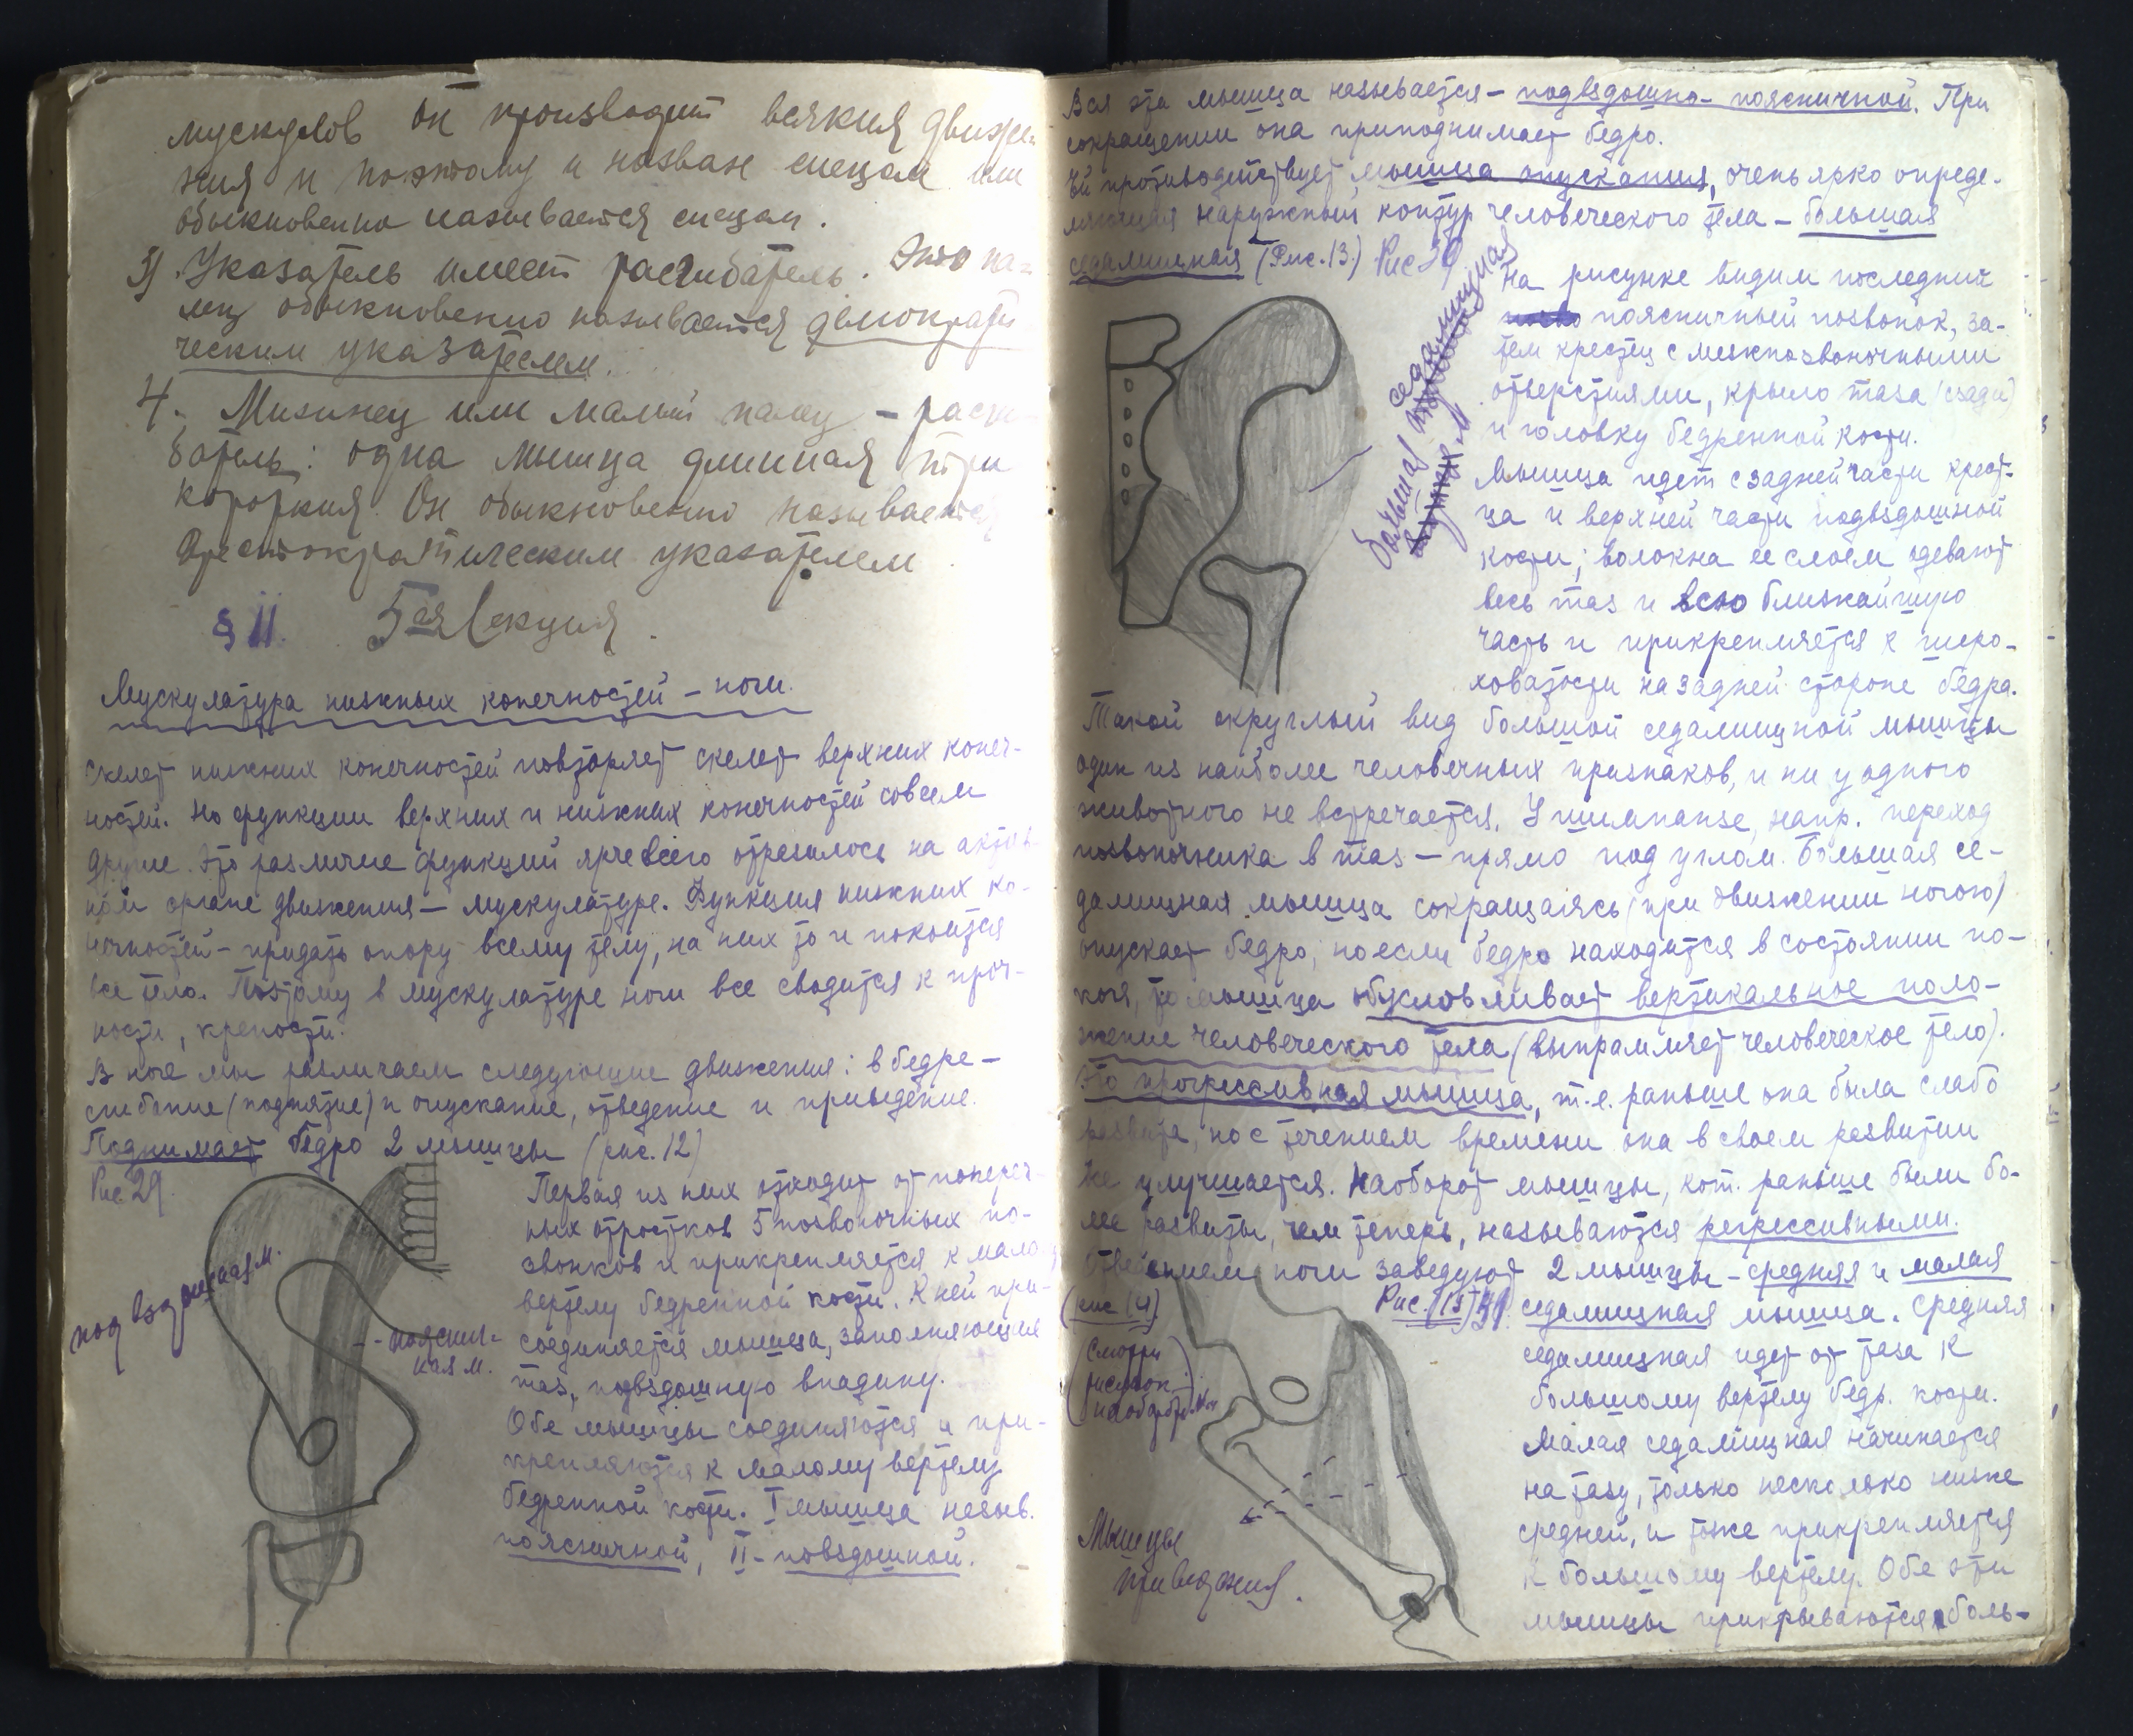 мускулов он производит всякия движе-
ния и поэтому и назван спецом или
обыкновенно называется спецом.
3) Указатель имеет разгибатель. Это па-
лец обыкновенно называется демократи
ческим указателем.
4. Мизинец или малый палец – разги
батель: одна мышца длинная три
короткия. Он обыкновенно называется
Аристократическим указателем.
§ II. 5ая Лекция.
Мускулатура нижных конечностей – ноги.
Скелет нижних конечностей повторяет скелет верхних конеч-
ностей. Но функции верхних и нижних конечностей совсем
другие. Это различие функций ярче всего отрезилось на актив-
ном органе движения – мускулатуре. Функция нижних ко-
нечностей – придать опору всему телу, на них то и покоится
все тело. Поэтому в мускулатуре ноги все сводится к проч-
ности, крепости.
В ноге мы различаем следующие движения: в бедре –
сгибание (поднятие) и опускание, отведение и приведение.
Поднимает бедро 2 мышцы (рис. 12)
Рис 29.
Первая из них отходит от попереч-
ных отростков 5 позвоночных по-
звонков и прикрепляется к мало
вертелу бедренной кости. К ней при-
соединяется мышца, заполняющая
таз, подвздошную впадину.
Обе мышцы соединяются и при-
крепляются к малому вертелу
бедренной кости. I мышца назыв.
поясничной, II – повздошной.
подвздошная м.
-- пояснич-
ная м.
Вся эта мышца называется – подвздошно-поясничной. При
сокращении она приподнимает бедро.
Ей противодействует мышца опускания, очень ярко опреде-
ляющая наружный контур человеческого тела – большая
седалищная (Рис. 13.) Рис 30
На рисунке видим последний
поясничный позвонок, за-
тем крестец с межпозвоночными
отверстиями, крыло таза (сзади)
и головку бедренной кости.
Мышца идет с задней части крест-
ца и верхней части подвздошной
кости; волокна ее слоем одевают
весь таз и всю ближайшую
часть и прикрепляется к шеро-
ховатости на задней стороне бедра.
большая седалищная
Такой округлый вид большой седалищной мышцы
один из наиболее человечных признаков, и ни у одного
животного не встречается. У шимпанзе, напр. переход
позвоночника в таз – прямо под углом. Большая се-
далищная мышца сокращаясь (при движении ногою)
опускает бедро, но если бедро находится в состоянии по-
коя, то мышца обусловливает вертикальное поло-
жение человеческого тела (выпрямляет человеческое тело).
Это прогрессивная мышца, т.е. раньше она была слабо
развита, но с течением времени она в своем развитии
же улучшается. Наоборот мышцы, кот. раньше были бо-
лее развиты, чем теперь, называются регрессивными.
Отведением ноги заведуют 2 мышцы – средняя и малая
(рис 14) Рис. (15) 31. седалищная мышца. Средняя
седалищная идет от таза к
большому вертелу бедр. кости.
Малая седалищная начинается
на тазу, только несколько ниже
средней, и тоже прикрепляется
к большому вертелу. Обе эти
мышцы прикрываются боль-
(Смотри
рисунок
Мышцы
приведения.